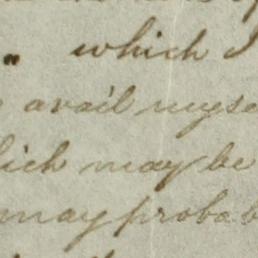 " which I
avail myse
hich may be
may probab